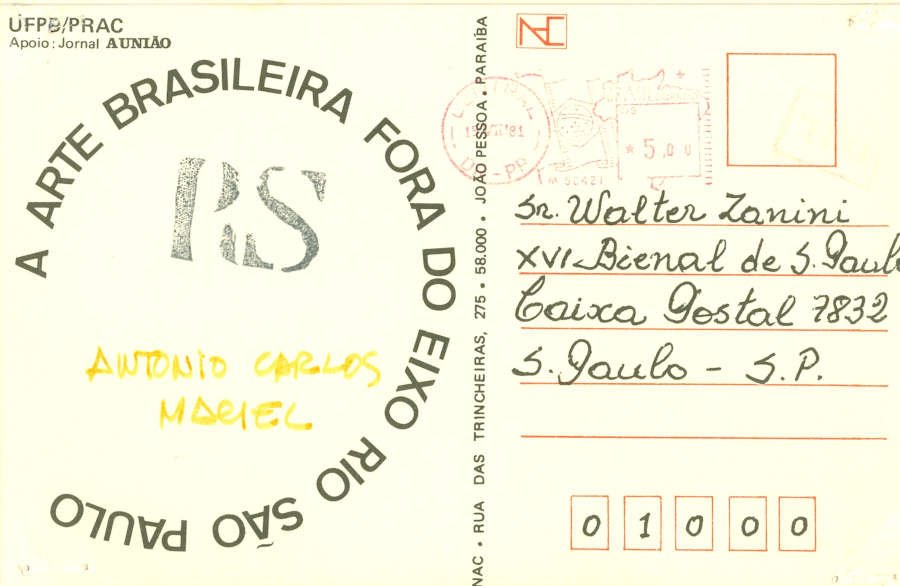 UFPB/PRAC
Apoio: Jornal A UNIÃO
A ARTE BRASILEIRA FORA DO EIXO RIO SÃO PAULO
RS
ANTONIO CARLOS
MACIEL
NAC • RUA DAS TRINCHEIRAS, 275 • 58.000 • JOÃO PESSOA • PARAÍBA
NAC
81
* 5,00
Sr. Walter Zanini
XVI Bienal de S. Paulo
Caixa Postal 7832
S. Paulo - S.P.
0 1 0 0 0